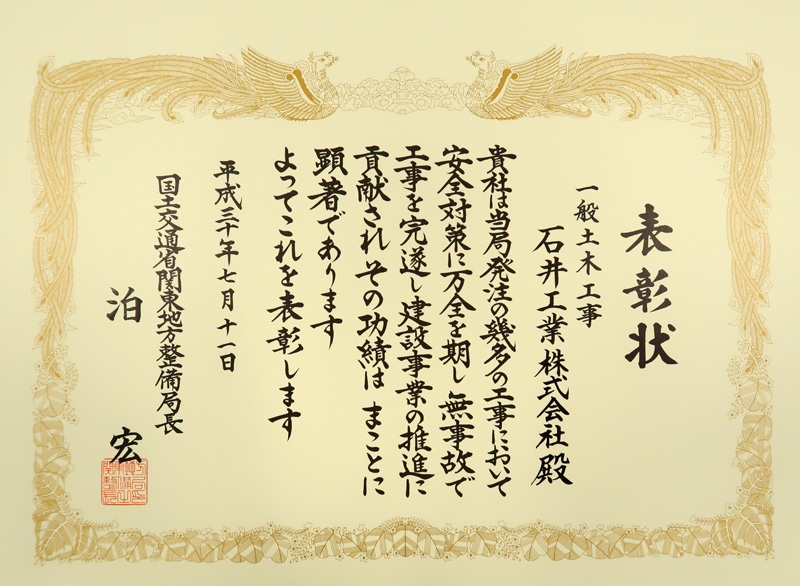 表彰状
一般土木工事
石井工業株式会社殿
貴社は当局発注の幾多の工事において
安全対策に万全を期し無事故で
工事を完遂し建設事業の推進に
貢献されその功績はまことに
顕著であります
よってこれを表彰します
平成三十年七月十一日
国土交通省関東地方整備局長
泊宏